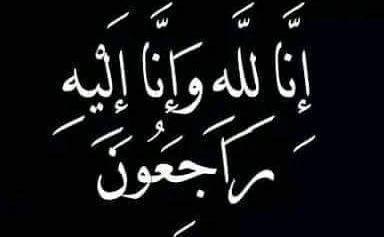 إِنَّا لِلَّٰه وَإِنَّا إِلَيْهِ
رَاجِعُونَ